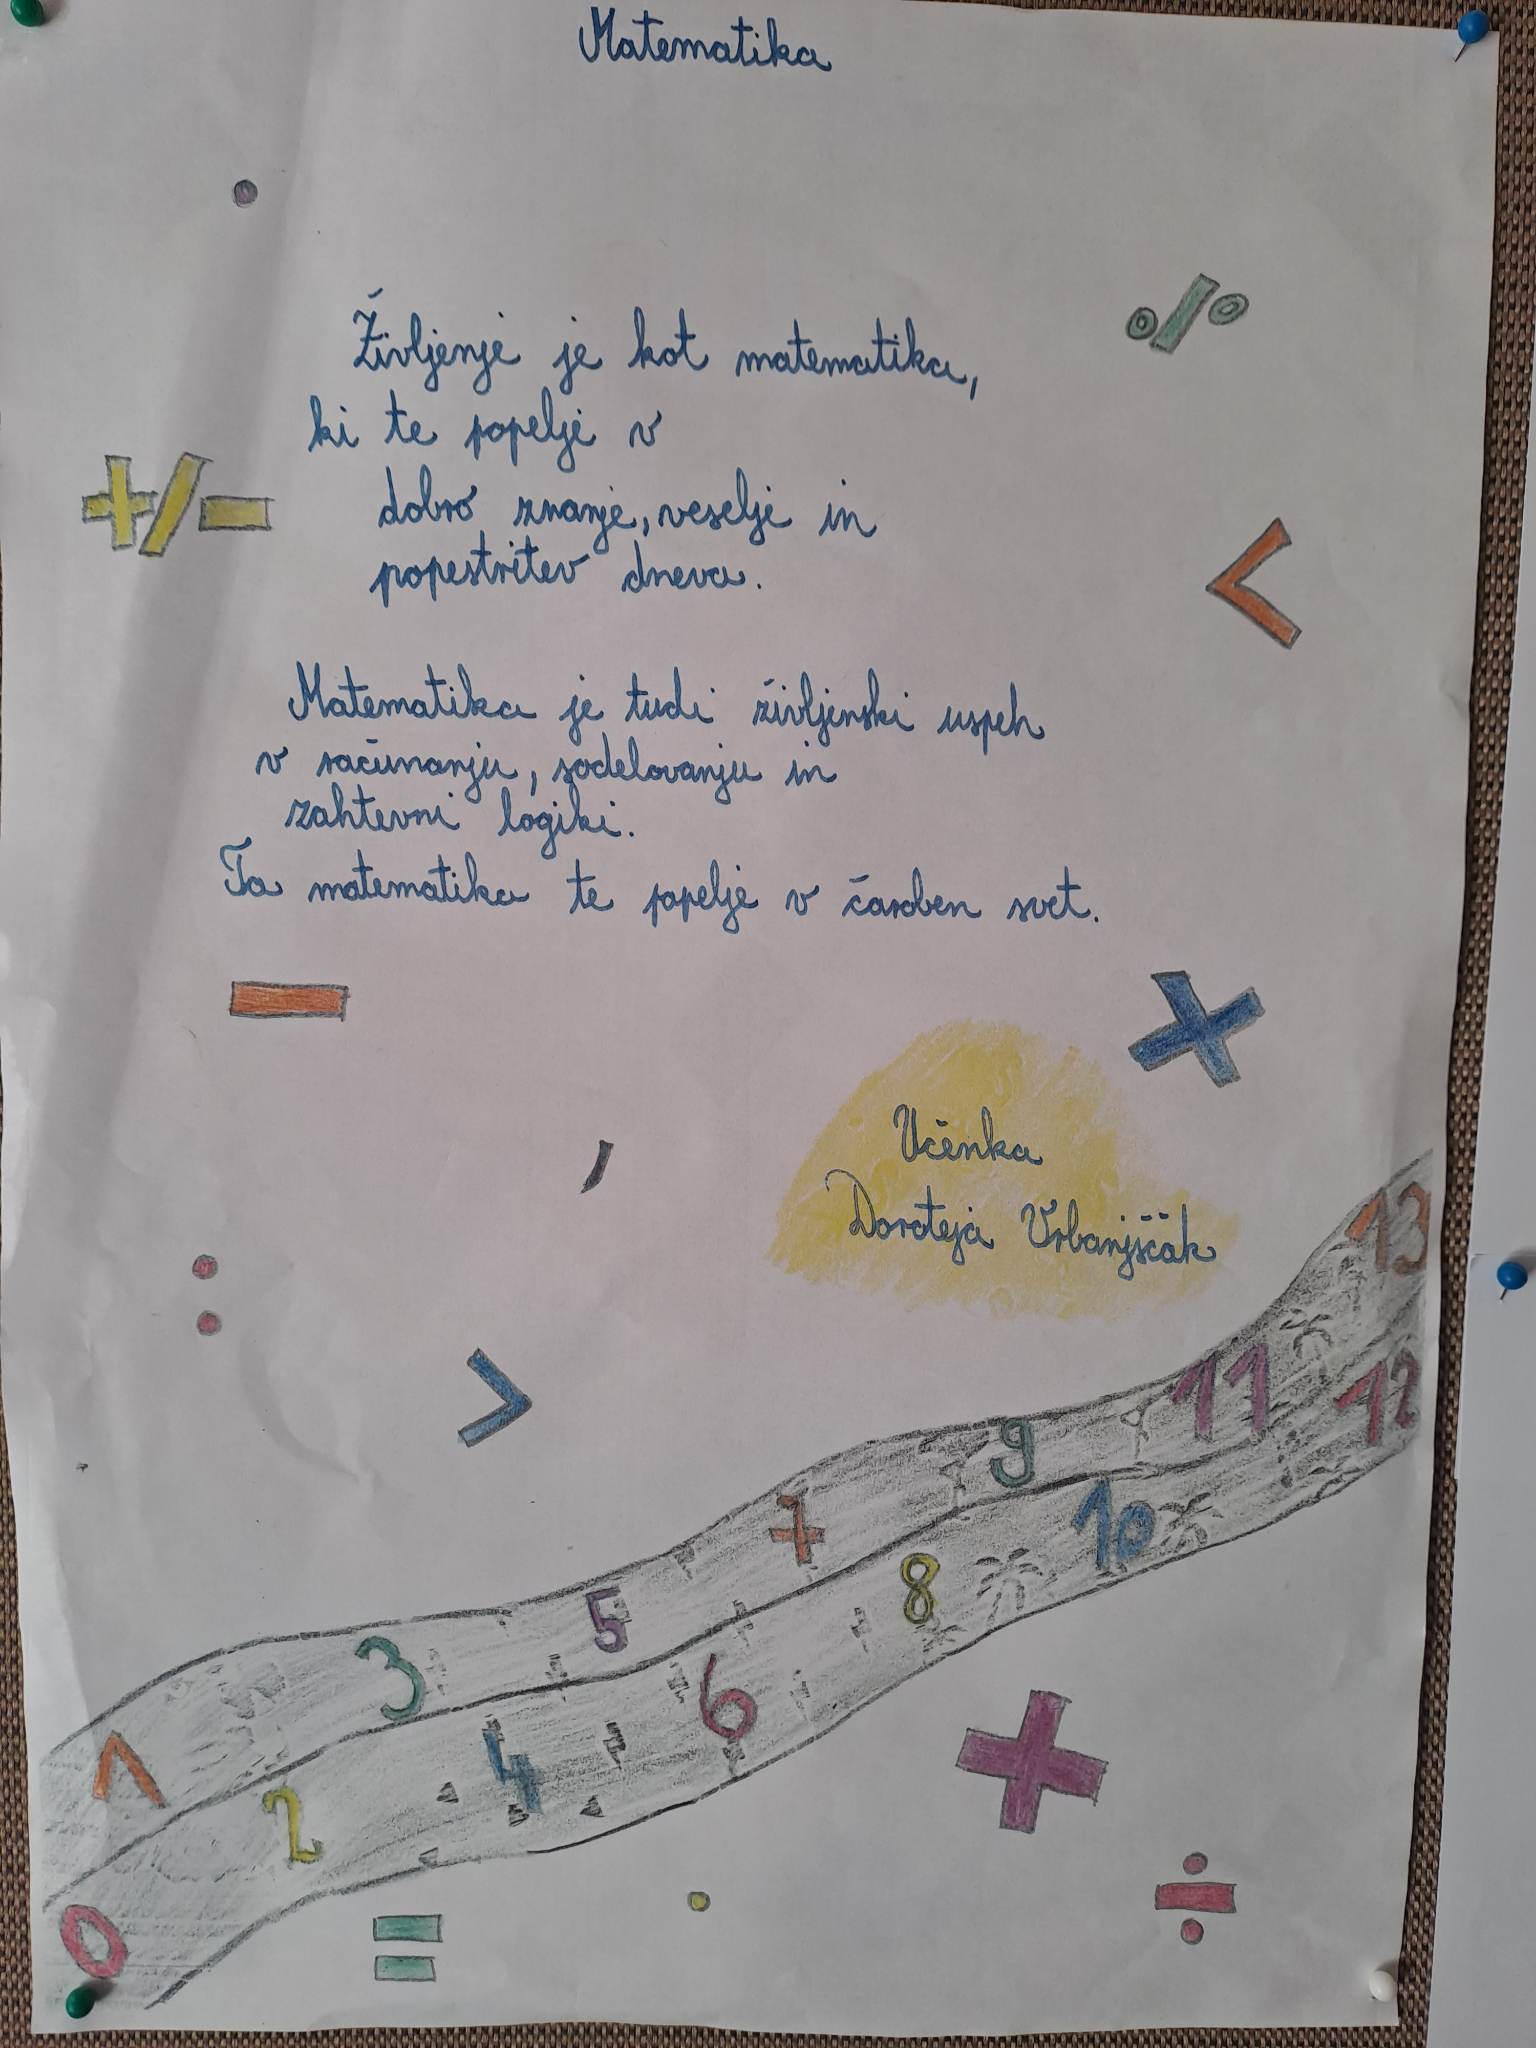 Matematika
Življenje je kot matematika,
ki te popelje v
dobro znanje, veselje in
popestritev dneva.
Matematika je tudi življenski uspeh
v računanju, sodelovanju in
zahtevni logiki.
Ta matematika te popelje v čaroben svet.
Učenka
Doroteja Vrbanjščak
%
+/-
<
-
×
,
:
>
13
11
12
9
10
7
8
5
6
3
4
1
2
0
+
÷
=
.